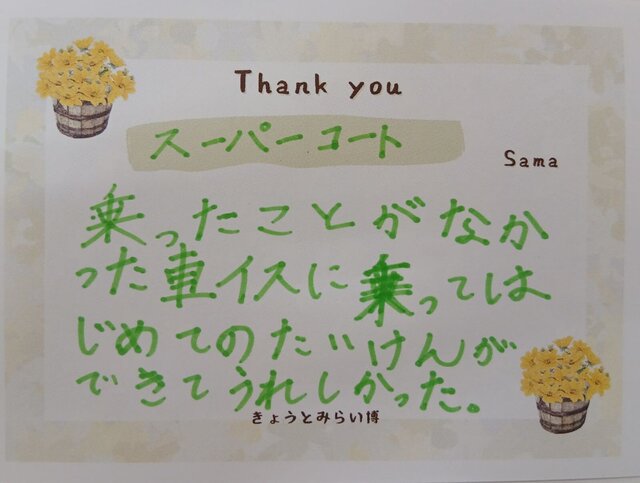 Thank you
スーパーコート
Sama
乗ったことがなか
った車イスに乗っては
じめてのたいけんが
できてうれしかった。
きょうとみらい博